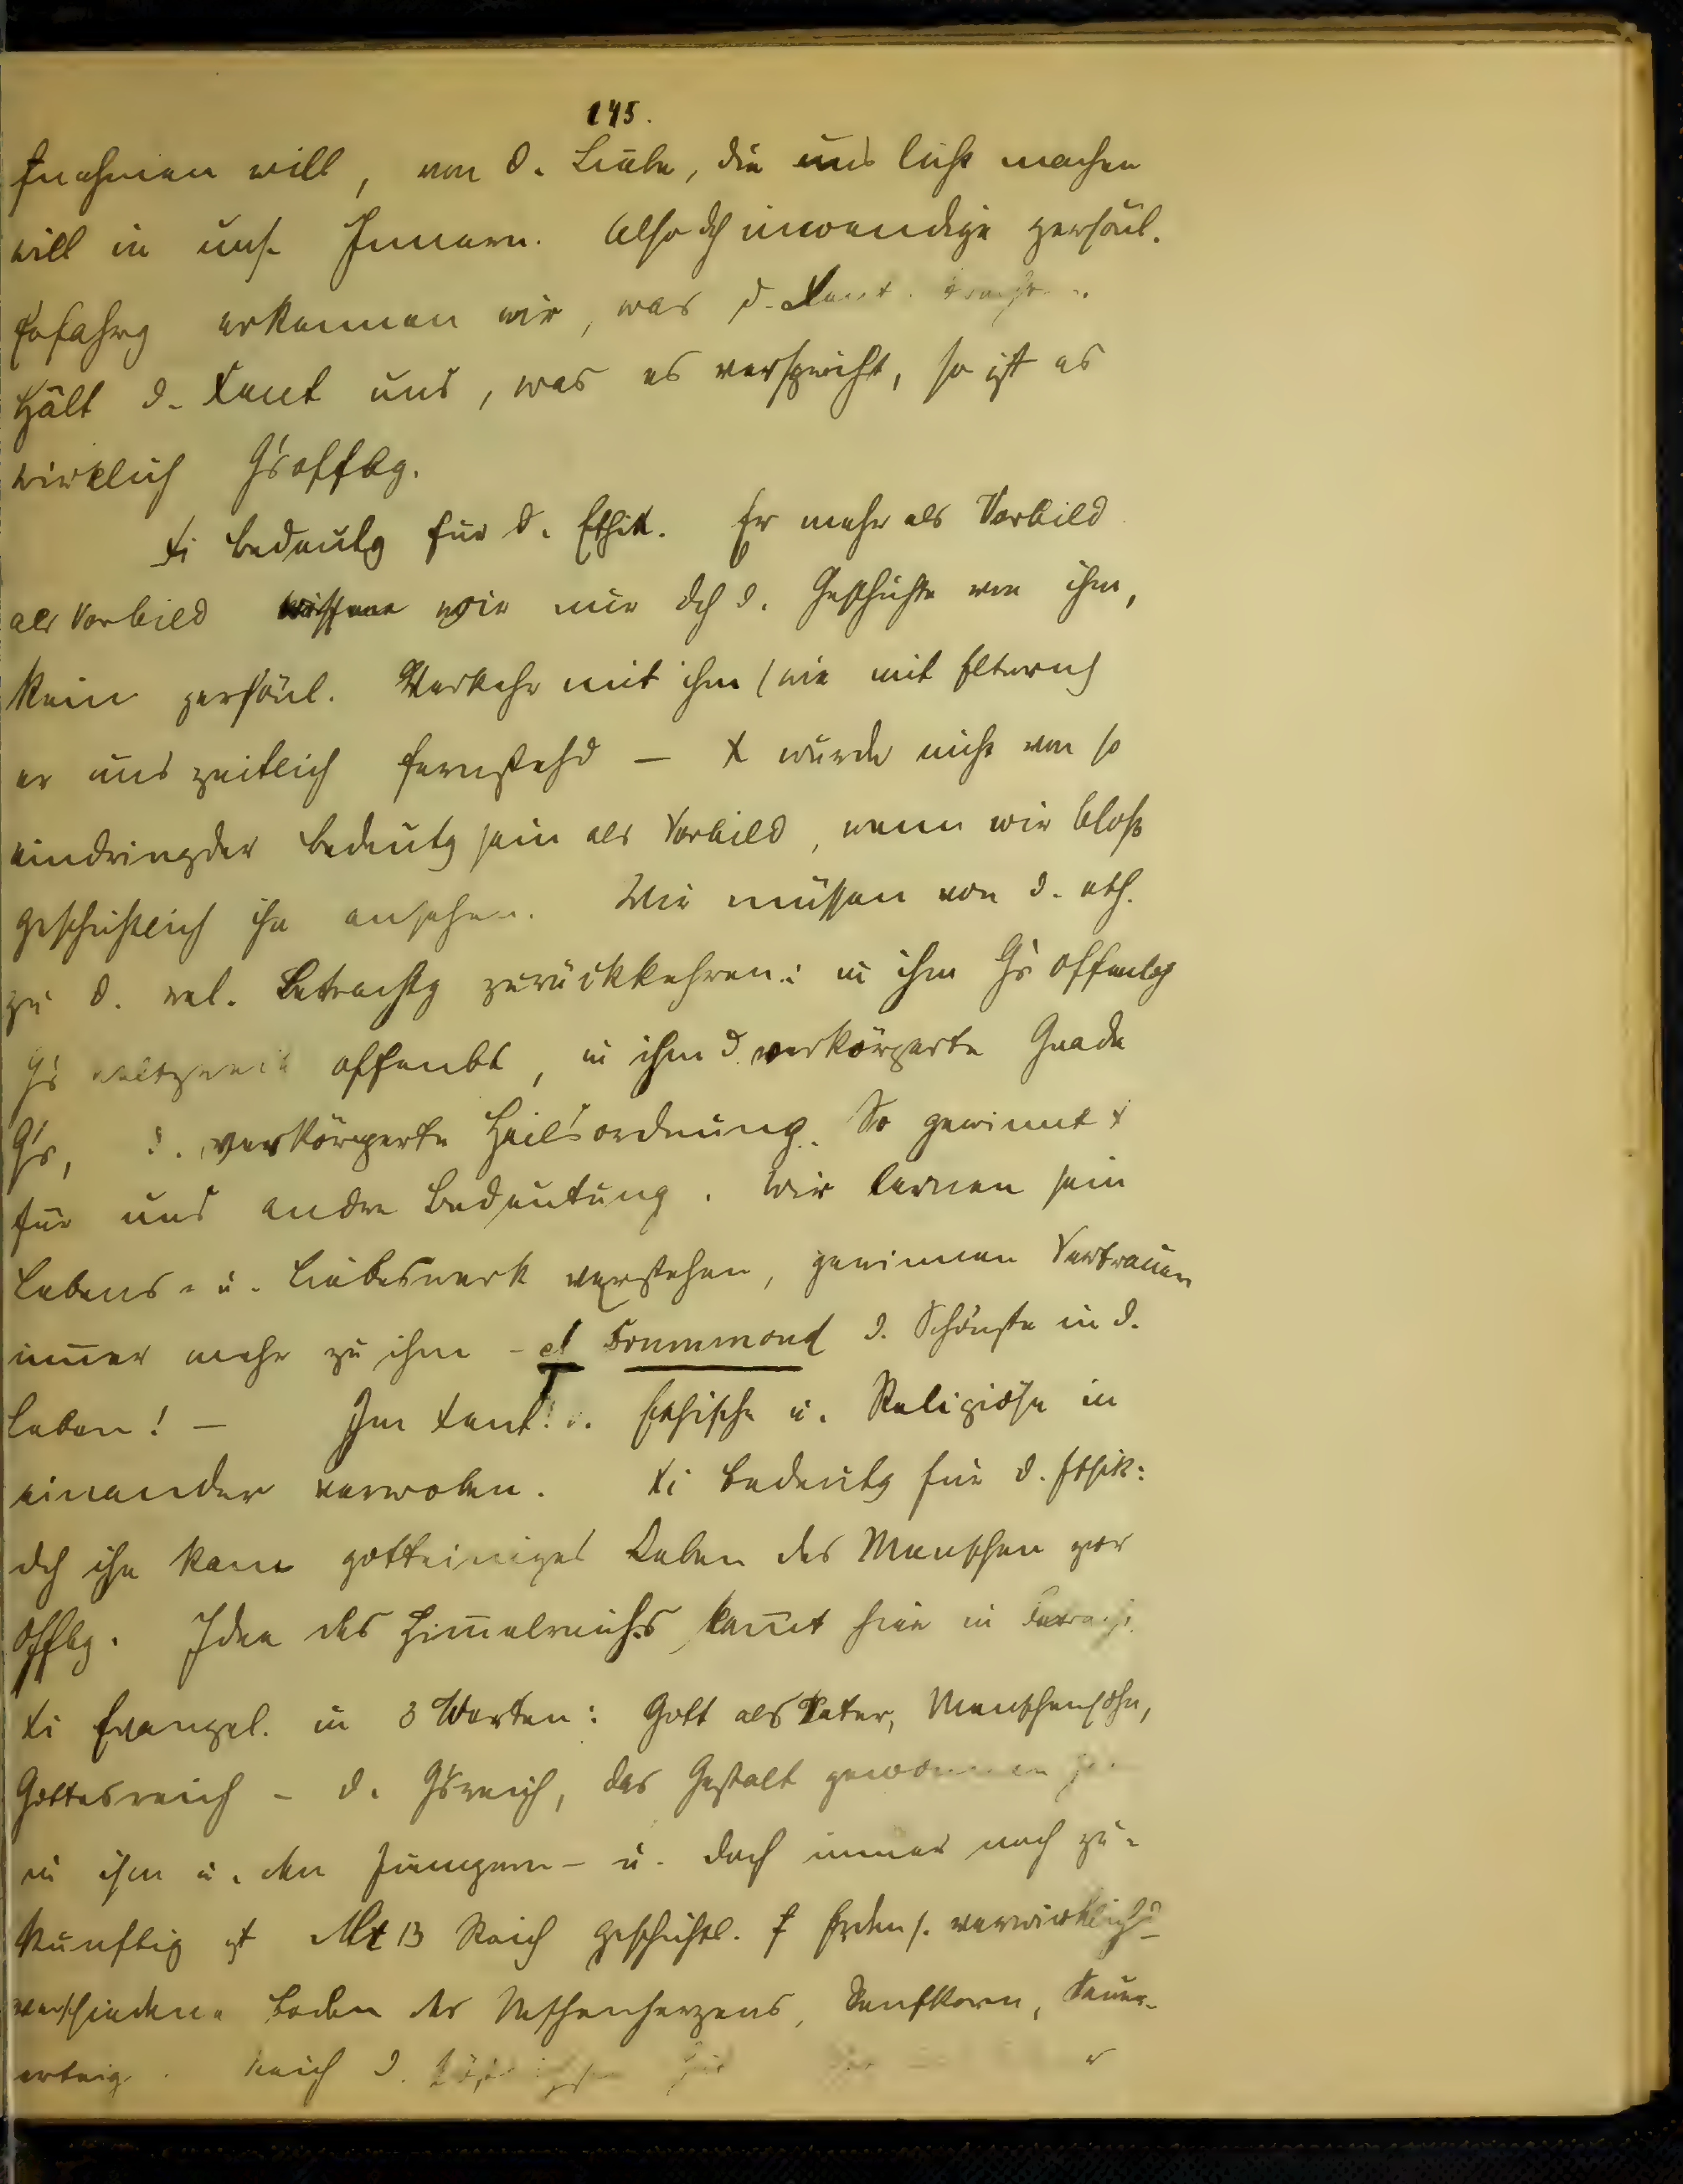 145.
will, von d. Liebe, die uns licht machen
will in uns. Innern. Also dch inwendige persönl.
Erfahrg erkennen wir, was d. Xent.
Hält d. Xent uns, was es verspricht, so ist es
wirklich G's offbg.
Xi Bedeutg für d. Ethik. Er mehr als Vorbild
als Vorbild wissen wir nur dch d. Geschichte von ihm,
kein persönl. Verkehr mit ihm (wie mit Eltern)
er uns zeitlich fernstehd — X würde nicht von so
eindringder Bedeutg sein als Vorbild, wenn wir bloß
geschichtlich ihn ansehen. Wir müssen von d. eth.
zu d. rel. Betrachtg zurückkehren: in ihm G's Offenbg
G's offenbt, in ihm d. verkörperte Gnade
G's, d. verkörperte Heilsordnung. So gewinnt X
für uns andre Bedeutung. Wir lernen sein
Lebens- u. Liebeswerk verstehen, gewinnen Vertrauen
immer mehr zu ihm - cf Drummond d. Schönste in d.
Leben! — Im Xent. d. Ethische u. Religiöse in
einander verwoben. Xi Bedeutg für d. Ethik:
dch ihn kam gotteiniges Leben des Menschen zur
Offbg. Idee des Himmelreichs kommt hier in Betracht.
Xi Evangel. in 3 Worten: Gott als Vater, Menschensohn,
Gottesreich - d. G'sreich, das Gestalt gewonnen
in ihm u. den Jüngern - u. doch immer noch zu-
künftig ist Mt 13 Reich geschichtl. f Erden s. verwirklichd
verschiedene Boden des Mschenherzens, Senfkorn, Sauer-
erteig. Reich d.